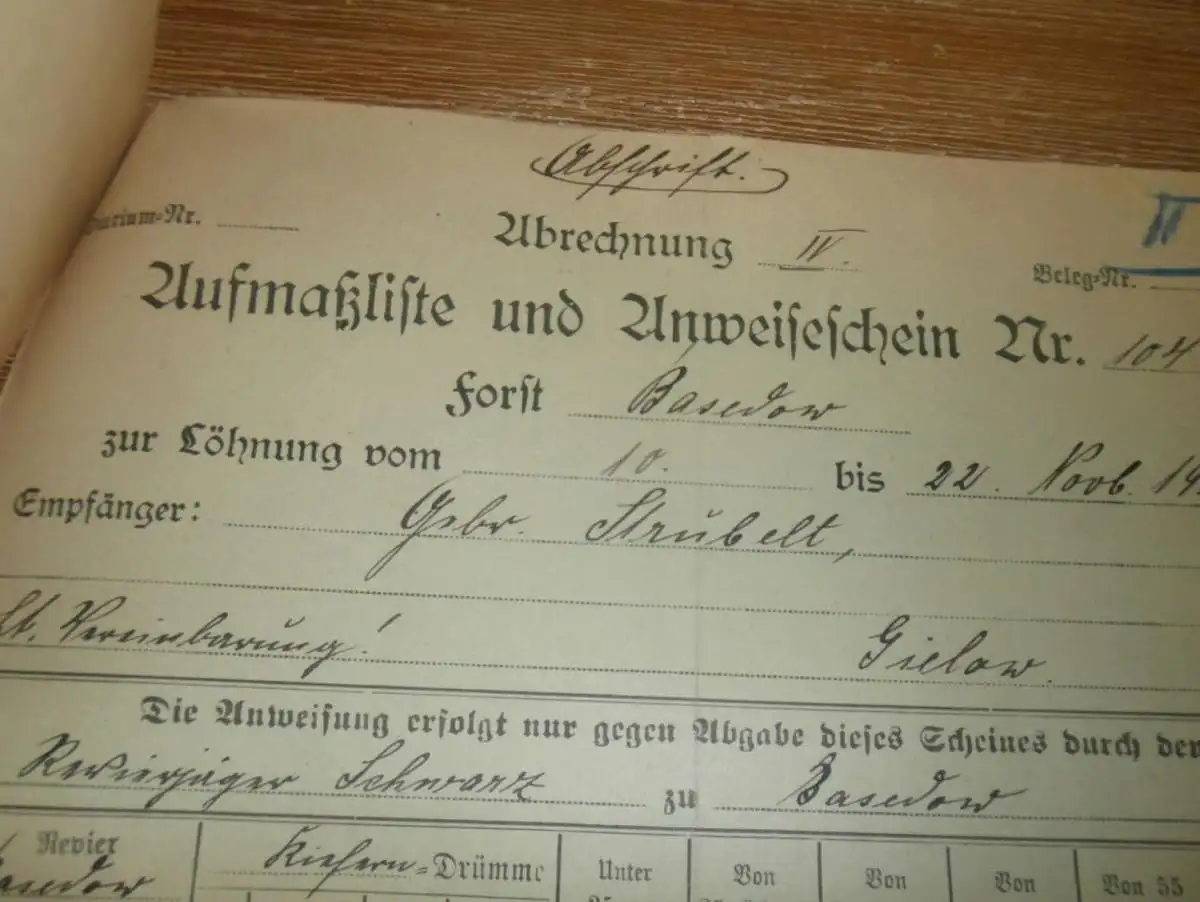 Abschrift.
Abrechnung IV.
Beleg-Nr.
Aufmaßliste und Anweiseschein Nr. 104
Forst Basedow
zur Löhnung vom 10. bis 22. Novb. 19
Empfänger: Gebr. Strubelt,
Lt. Vereinbarung! Gielow.
Die Anweisung erfolgt nur gegen Abgabe dieses Scheines durch den
Revierjäger Schwarz zu Basedow
Revier Kiefern-Drümme Unter Von Von Von Von 55
Basedow